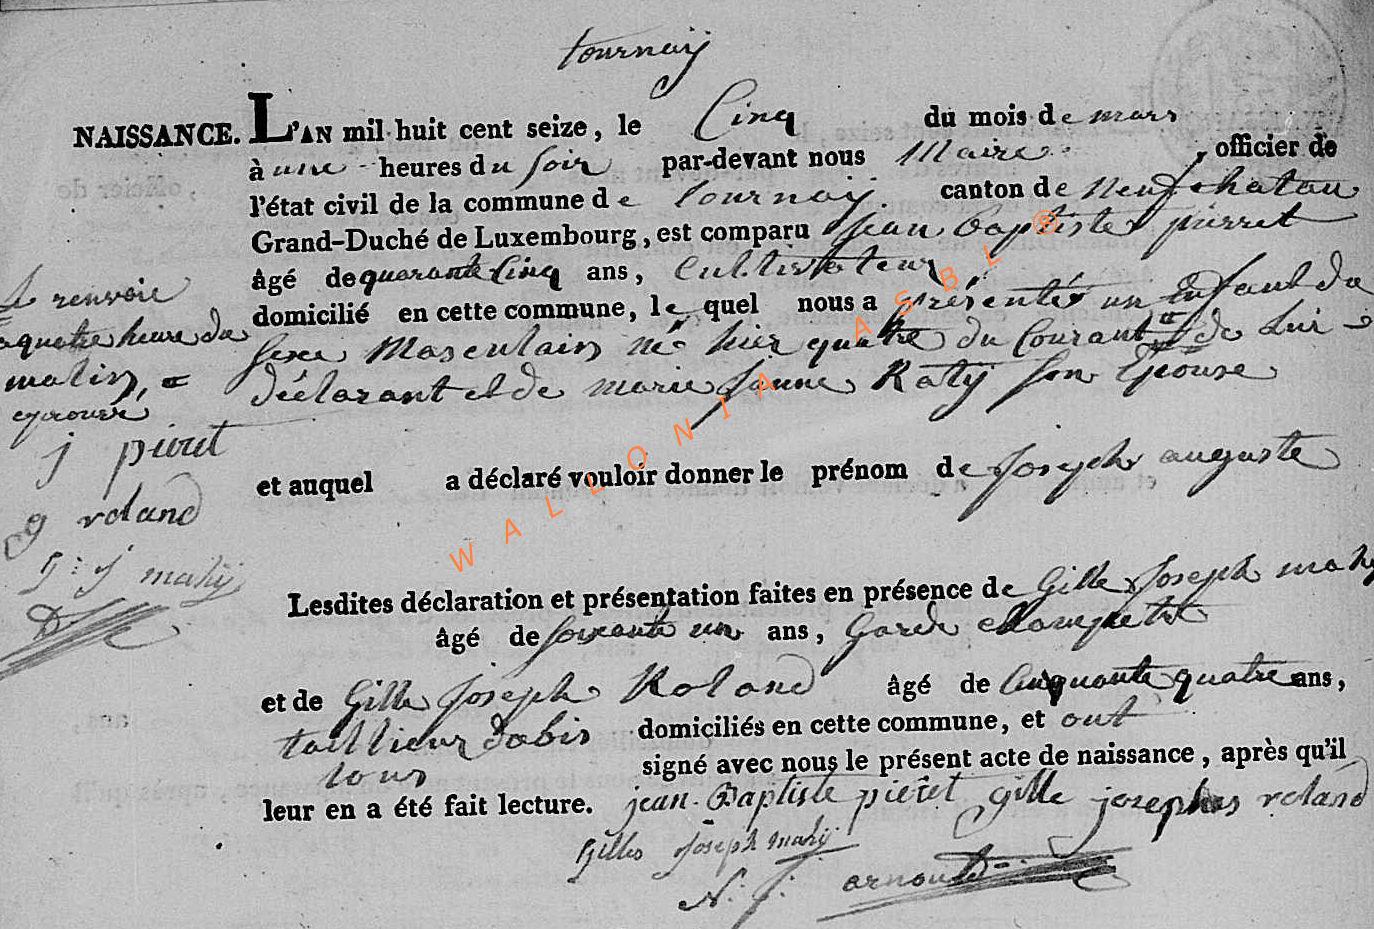 tournay
NAISSANCE. L'AN mil huit cent seize, le Cinq du mois de mars
à une heures du soir par-devant nous Maire , officier de
l'état civil de la commune de tournay. canton de Neufchatau
Grand-Duché de Luxembourg, est comparu Jean Baptiste pierret
âgé de quarante Cinq ans, Cultivateur
domicilié en cette commune, le quel nous a présentés un Enfant du
sexe Masculain né hier quatre du Courant de Lui
déclarant et de marie Jeanne Katy son Epouse
et auquel a déclaré vouloir donner le prénom de Joseph auguste
Lesdites déclaration et présentation faites en présence de Gille Joseph mahy
âgé de soixante un ans, Garde Champetre
et de Gille Joseph Roland âgé de Cinquante quatre ans,
taillieur dabis domiciliés en cette commune, et ont
tous signé avec nous le présent acte de naissance, après qu'il
leur en a été fait lecture. jean Baptiste pierret gille joseph roland
Gilles Joseph mahy
N. J. arnould
Le renvoie
a quatre heure du
matin, =
eprouvé
j pieret
g roland
G: J mahy
WALLONIA ASBL ®